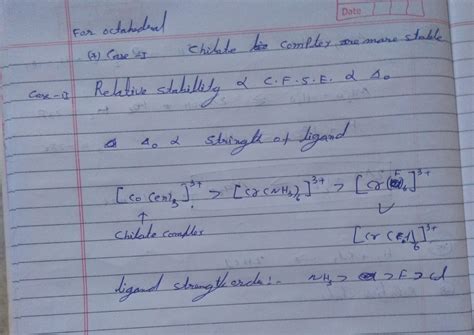 Date
For octahedral
(*) Case-I Chilate complex are more stable
Case-II Relative stability α C.F.S.E. α Δo
Δo α strength of ligand
[Co(en)3]3+ > [Cr(NH3)6]3+ > [Cr(F)6]3+
↑
Chilate complex
[Cr(Cl)6]3+
ligand strength order:- NH3 > F > Cl